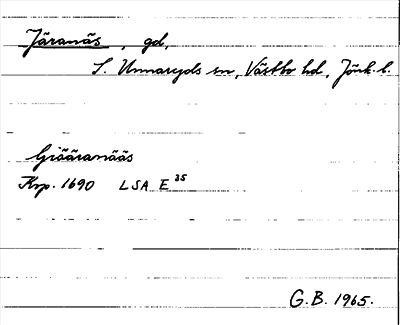 Järanäs, gd,
S. Unnaryds sn, Västbo hd, Jönk. l.
Giääranääs
Krp. 1690 LSA E 35
G.B. 1965.